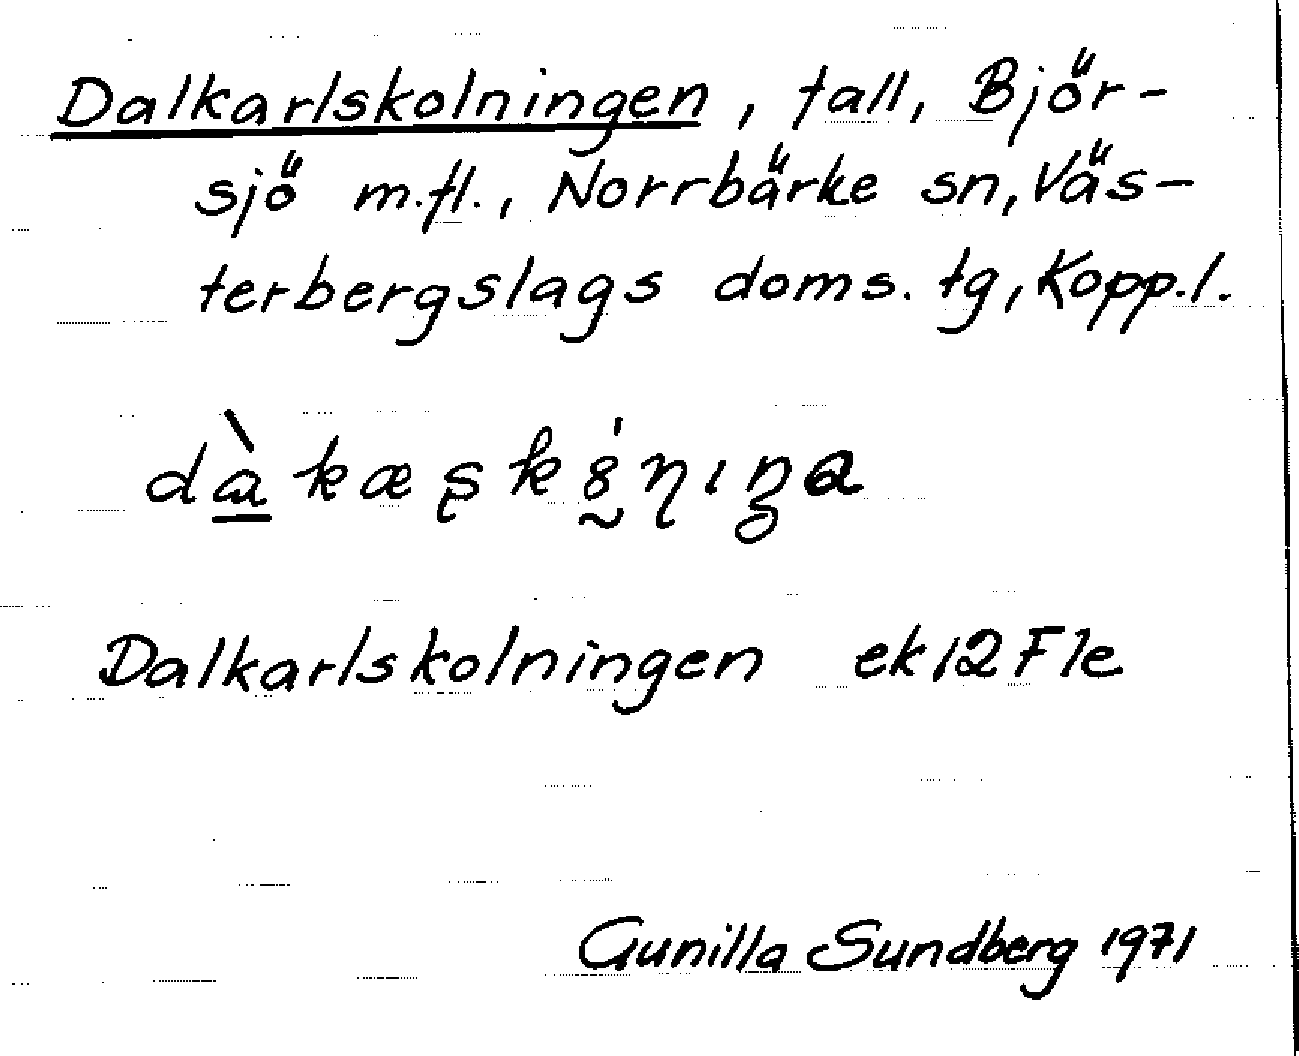 Dalkarlskolningen, tall, Björ-
sjö m.fl., Norrbärke sn, Väs-
terbergslags doms. tg, Kopp.l.
Dalkarlskolningen ek 12 F 1e
Gunilla Sundberg 1971